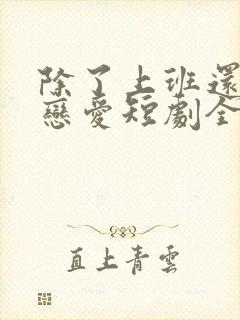 除了上班還
戀愛短劇全
直上青雲